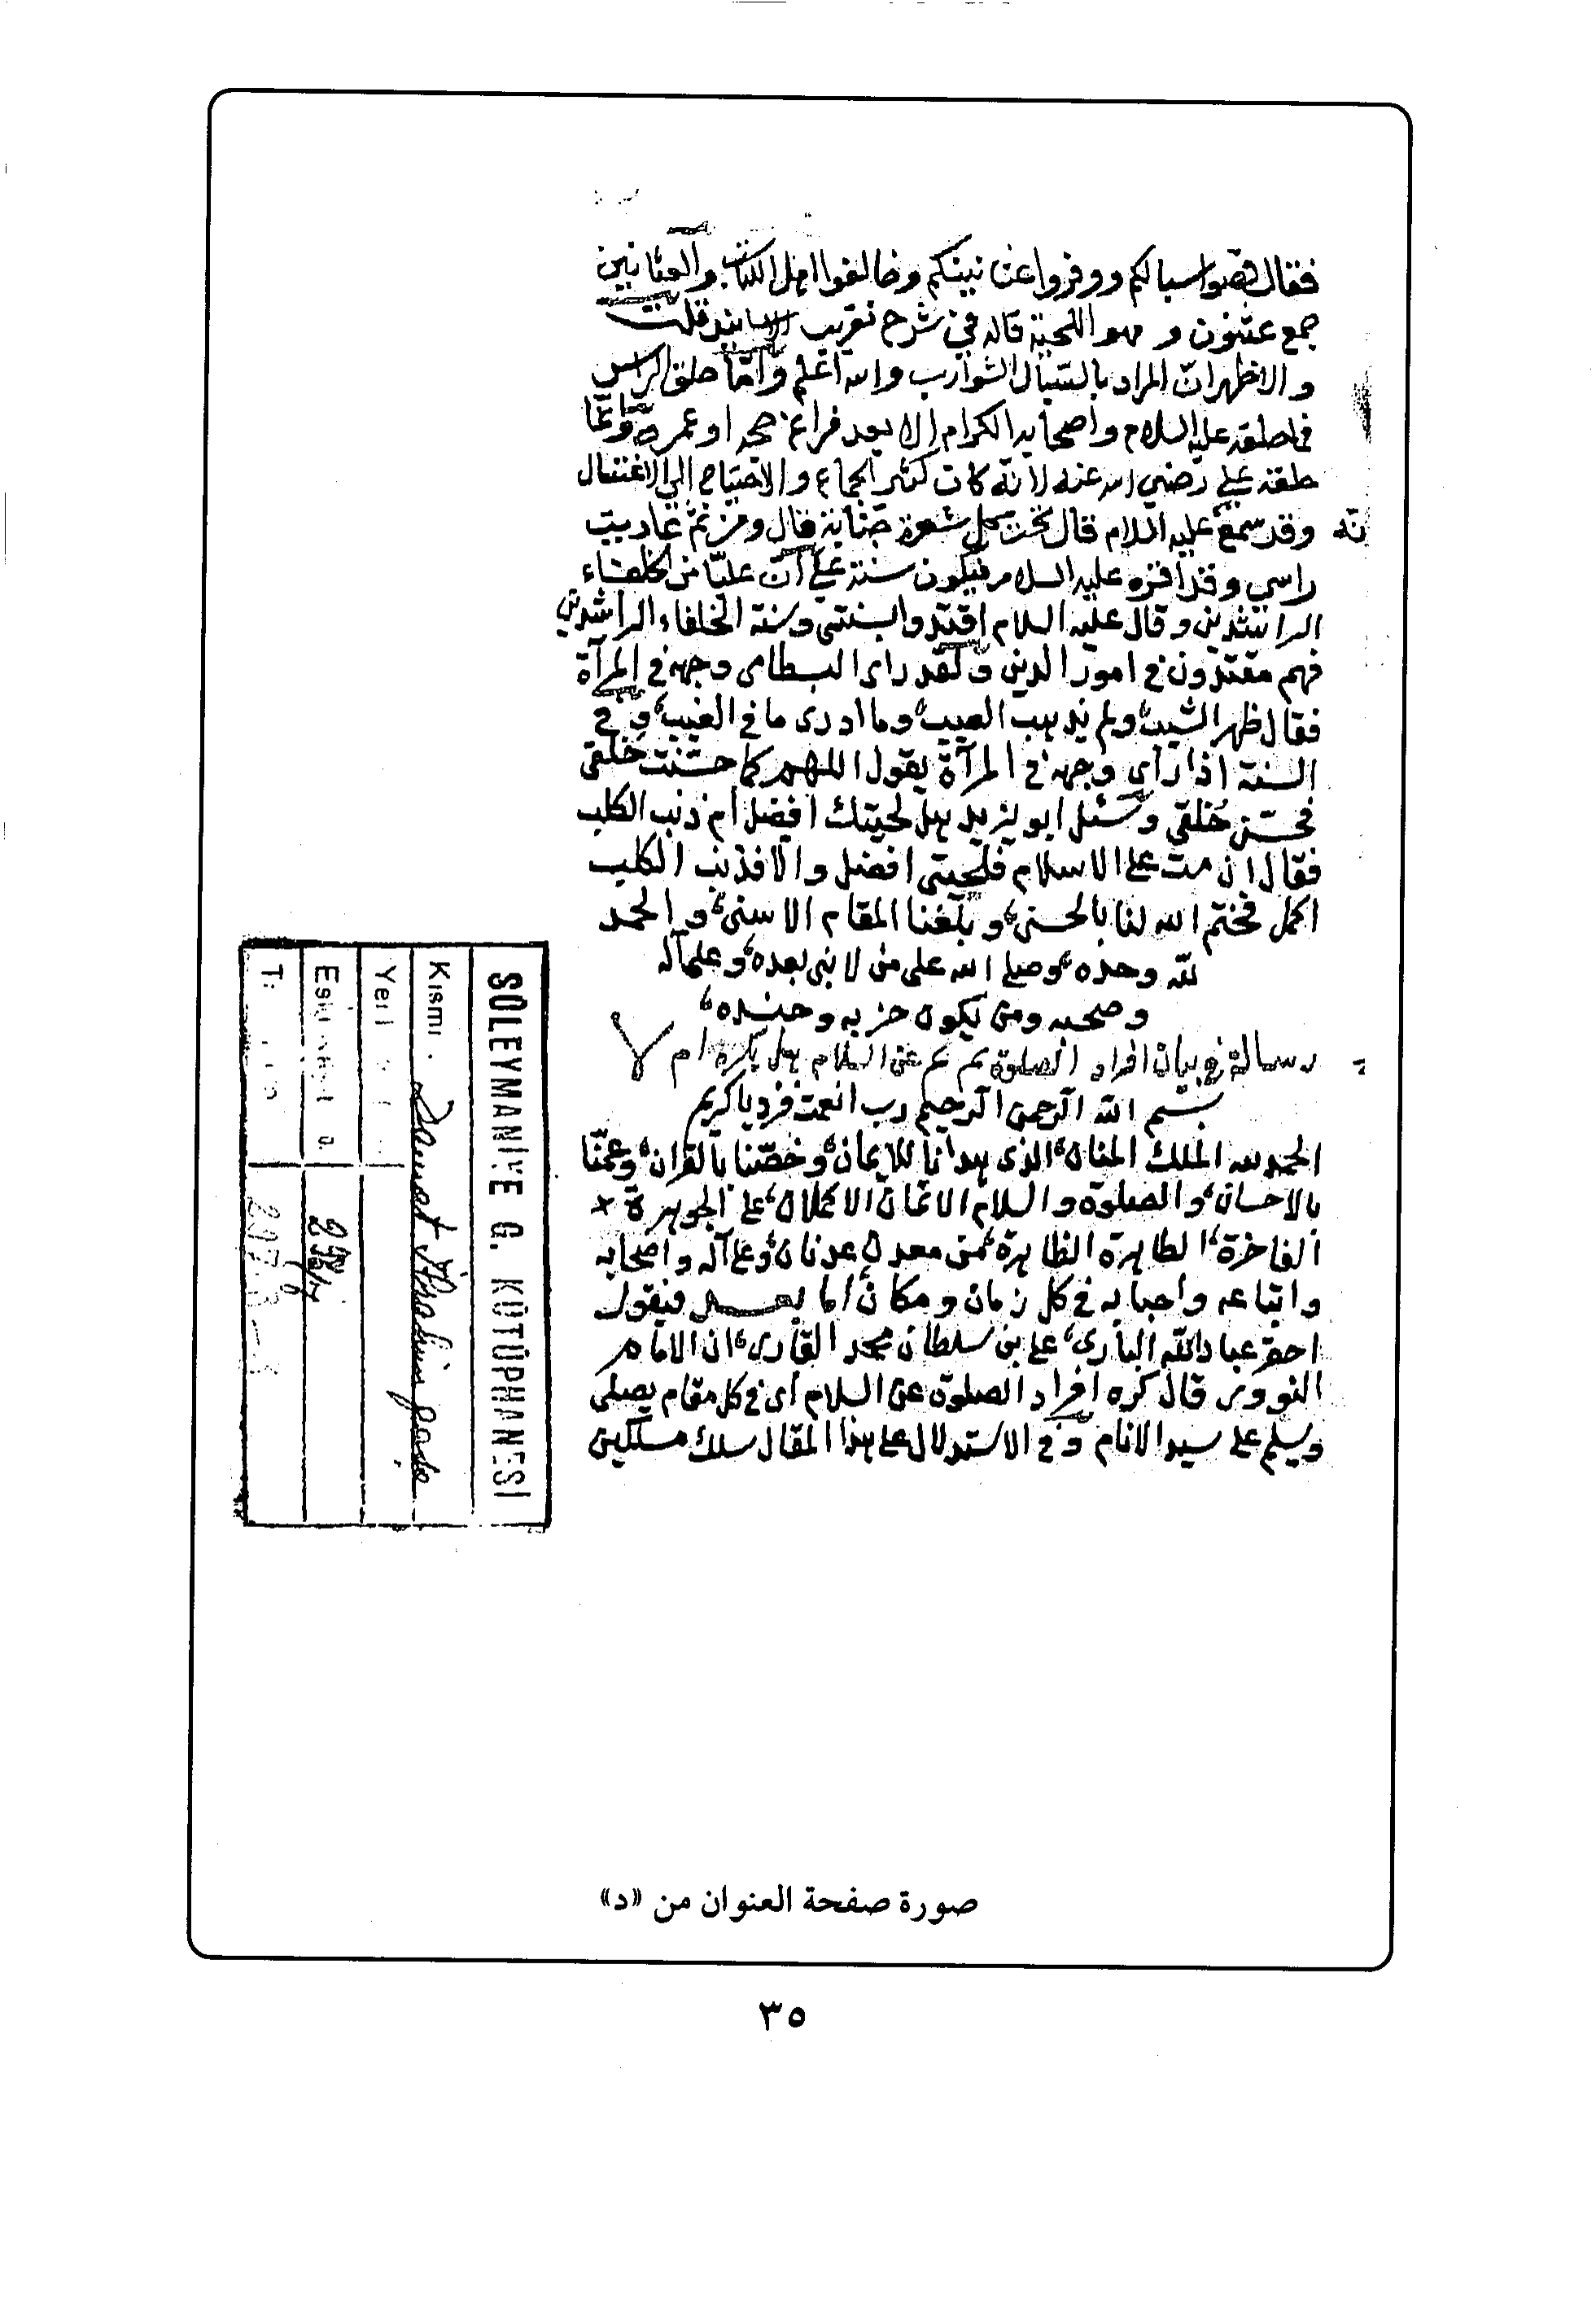 فقال قصوا سبالكم ووفروا عثانينكم وخالفوا اهل الكتاب والعثانين
جمع عثنون وهو اللحية قاله في شرح تقريب الاسانيد قلت
والاظهر ان المراد بالسبال الشوارب والله اعلم واما حلق الراس
فما حلقه عليه السلام واصحابه الكرام الا بعد فراغ حجه او عمرة وانما
حلقه علي رضي الله عنه لانه كان كثير الجماع والاحتياج الي الاغتسال
وقد سمع عليه السلام قال تحت كل شعرة جنابة قال ومن ثم عاديت
راسي وقد اقره عليه السلام فيكون سنة علي ان عليا من الخلفاء
الراشدين وقال عليه السلام اقتدوا بسنتي وسنة الخلفاء الراشدين
فهم مقتدون في امور الدين ولقد راى البسطامى وجهه في المرآة
فقال ظهر الشيب ولم يذهب العيب وما ادرى ما في الغيب وفي
السنة اذا رأى وجهه في المرآة يقول اللهم كما حسّنت خَلقى
فحسّن خُلقى وسئل ابو يزيد هل لحيتك افضل أم ذنب الكلب
فقال ان مت على الاسلام فلحيتى افضل والا فذنب الكلب
اكمل فختم الله لنا بالحسنى وبلّغنا المقام الاسنى والحمد
لله وحده وصلى الله على من لا نبى بعده وعلى آله
وصحبه ومن يكون حزبه وجنده
رسالة في بيان افراد الصلوة عن السلام هل يكره ام لا
بسم الله الرحمن الرحيم رب انعمت فزد يا كريم
الحمد لله الملك المنان الذى هدانا للايمان وخصّنا بالقران وعمّنا
بالاحسان والصلوة والسلام الاتمان الاكملان على الجوهرة
الفاخرة الطاهرة الظاهرة من معدن عدنان وعلى آله واصحابه
واتباعه واحبابه في كل زمان ومكان اما بعد فيقول
احقر عباد الله البارى على بن سلطان محمد القارى ان الامام
النووى قال كره افراد الصلوة عن السلام أى في كل مقام يصلى
ويسلم على سيد الانام وفي الاستدلال على هذا المقال سلك مسلكين
SÜLEYMANİYE G. KÜTÜPHANESİ
Kısmı
Yeni
Eski
297.3
صورة صفحة العنوان من «د»
٣٥